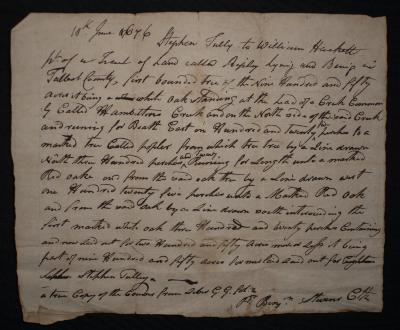 10th June 1676 Stephen Tully to William Hackett
pt of a Tract of Land called Lying and Being in
Talbott County, first bounded tree of the Nine Hundred and fifty
acres it being a white Oak Standing at the head of a Creek Common
ly Called Creek and on the North side of the said Creek
and running for Bredth East on Hundred and twenty perches to a
marked tree Called poplar from which tree by a Line drawn
North three Hundred perches and Running for Length unto a marked
Red oake from the said oak tree by a Line drawn west
one Hundred twenty five perches unto a Marked Red Oak
and from the said oak by a Line drawn south intersecting the
first marked white oak three Hundred and twenty perches Containing
and now laid out for two Hundred and fifty acres more or less it being
part of nine Hundred and fifty acres formerly laid out for
Stephen Tulley
a true Copy of the from Liber G. G.
Stevens Clk